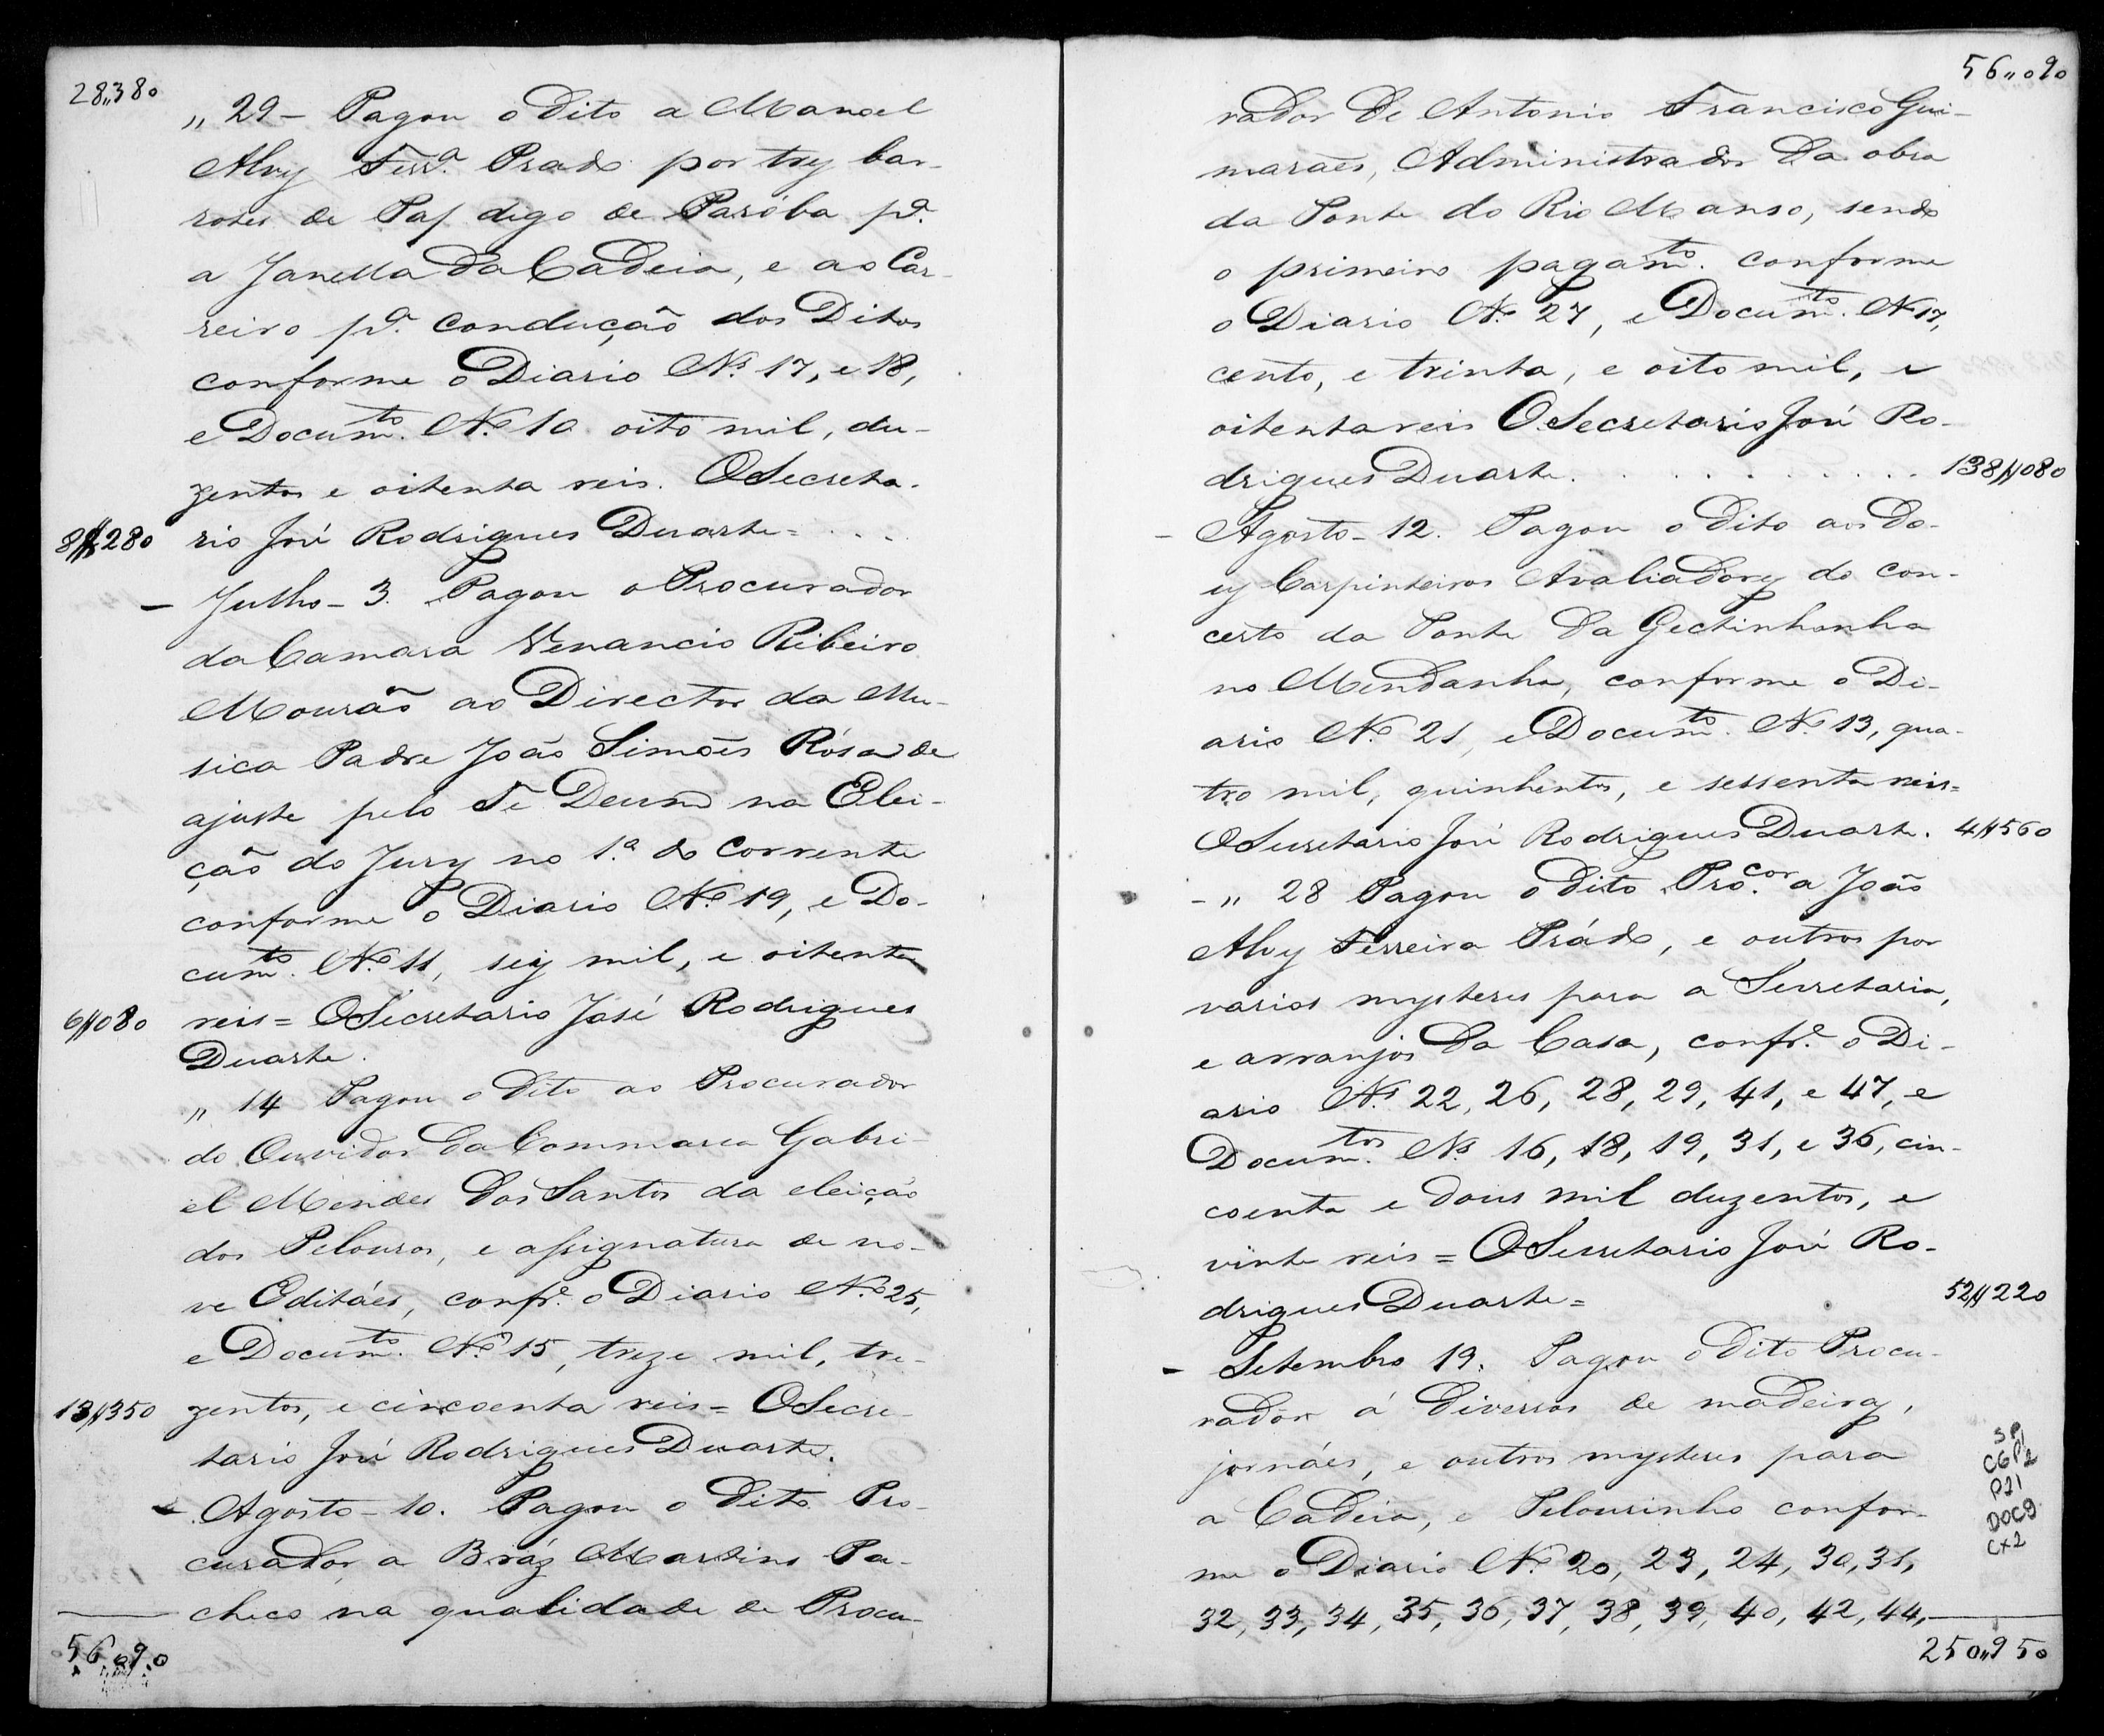 28,,380
,, 29 - Pagou o Dito a Manoel
Alvẽs Ferr.ª Prado por tres bar-
rotes de Pap digo de Paróba p.ª
a Janella da Cadeia, e ao Car-
reiro p.ª condução dos Ditos
conforme o Diario N.º 17, e 18,
e Docum.to N.º 10 oito mil, du-
zentos e oitenta reis. O Secreta-
8$280 rio José Rodrigues Duarte = . . .
- Julho - 3. Pagou o Procurador
da Camara Venancio Ribeiro
Mourão ao Director da Mu-
sica Padre João Simões Rósa de
ajuste pelo Te Deum na Elei-
ção do Jury no 1.º do Corrente
conforme o Diario N.º 19, e Do-
cum.to N.º 11, seis mil, e oitenta
6$080 reis = O Secretario José Rodrigues
Duarte.
,, 14 Pagou o Dito ao Procurador
do Ouvidor da Commarca Gabri-
el Mendes dos Santos da eleição
dos Pelouros, e assignatura de no-
ve Editáes, confr.e o Diario N.º 25,
e Docum.to N.º 15, treze mil, tre-
13$350 zentos, e cincoenta reis = O Secre-
tario José Rodrigues Duarte.
- Agosto - 10. Pagou o Dito Pro-
curador a Bráz Martins Pa-
checo na qualidade de Procu-
56,,090
56,,090
rador de Antonio Francisco Gui-
maraẽs, Administrador da obra
da Ponte do Rio Manso, sendo
o primeiro pagam.to conforme
o Diario N.º 27, e Docum.to N 17,
cento, e trinta, e oito mil, e
oitenta reis O Secretario José Ro-
drigues Duarte. . . . . . . . . 138$080
- Agosto - 12. Pagou o Dito aos Do-
us Carpinteiros Avaliadores do con-
certo da Ponte da Gectinhonha
no Mendanha, conforme o Di-
ario N.º 21, e Docum.to N.º 13, qua-
tro mil, quinhentos, e sessenta reis =
O Secretario José Rodrigues Duarte. 4$560
- ,, 28 Pagou o Dito Pro.cor a João
Alves Ferreira Prádo, e outros por
varios mysteres para a Secretaria,
e arranjos da Casa, confr.e o Di-
ario N.s 22, 26, 28, 29, 41, e 47, e
Docum.tos N.s 16, 18, 19, 31, e 36, cin-
coenta e dous mil duzentos, e
vinte reis = O Secretario José Ro-
drigues Duarte = 52$220
- Setembro 19. Pagou o Dito Procu-
rador á Diversos de madeiras,
jornáes, e outros mysteres para
a Cadeia, e Pelourinho confor-
me o Diario N.º 20, 23, 24, 30, 31,
32, 33, 34, 35, 36, 37, 38, 39, 40, 42, 44,
250,,950
SP
C6P2
P21
DOC9
CX2